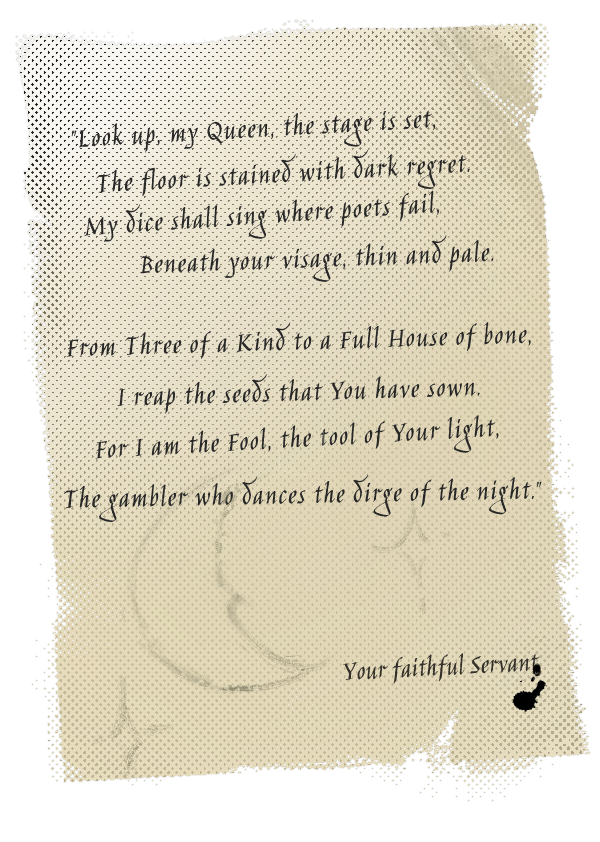 "Look up, my Queen, the stage is set,
The floor is stained with dark regret.
My dice shall sing where poets fail,
Beneath your visage, thin and pale.
From Three of a Kind to a Full House of bone,
I reap the seeds that You have sown.
For I am the Fool, the tool of Your light,
The gambler who dances the dirge of the night."
Your faithful Servant